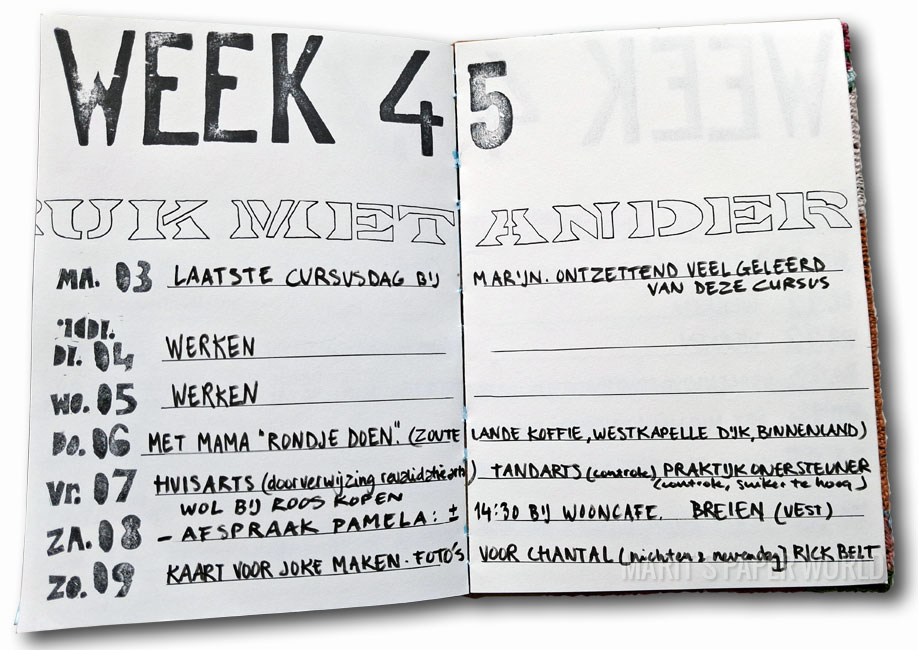 WEEK 45
RUK MET ANDER
MA. 03 LAATSTE CURSUSDAG BIJ MARIJN. ONTZETTEND VEEL GELEERD
VAN DEZE CURSUS
DI. 04 WERKEN
WO. 05 WERKEN
DO. 06 MET MAMA "RONDJE DOEN". (ZOUTELANDE KOFFIE, WESTKAPELLE DIJK, BINNENLAND)
VR. 07 HUISARTS (doorverwijzing revalidatiearts) TANDARTS (controle) PRAKTIJK ONERSTEUNER
(controle, suiker te hoog)
WOL BIJ ROOS KOPEN
ZA. 08 - AFSPRAAK PAMELA: ± 14:30 BIJ WOONCAFE. BREIEN (VEST)
ZO. 09 KAART VOOR JOKE MAKEN. FOTO'S VOOR CHANTAL (nichten & neven) RICK BELT
MARIT'S PAPER WORLD